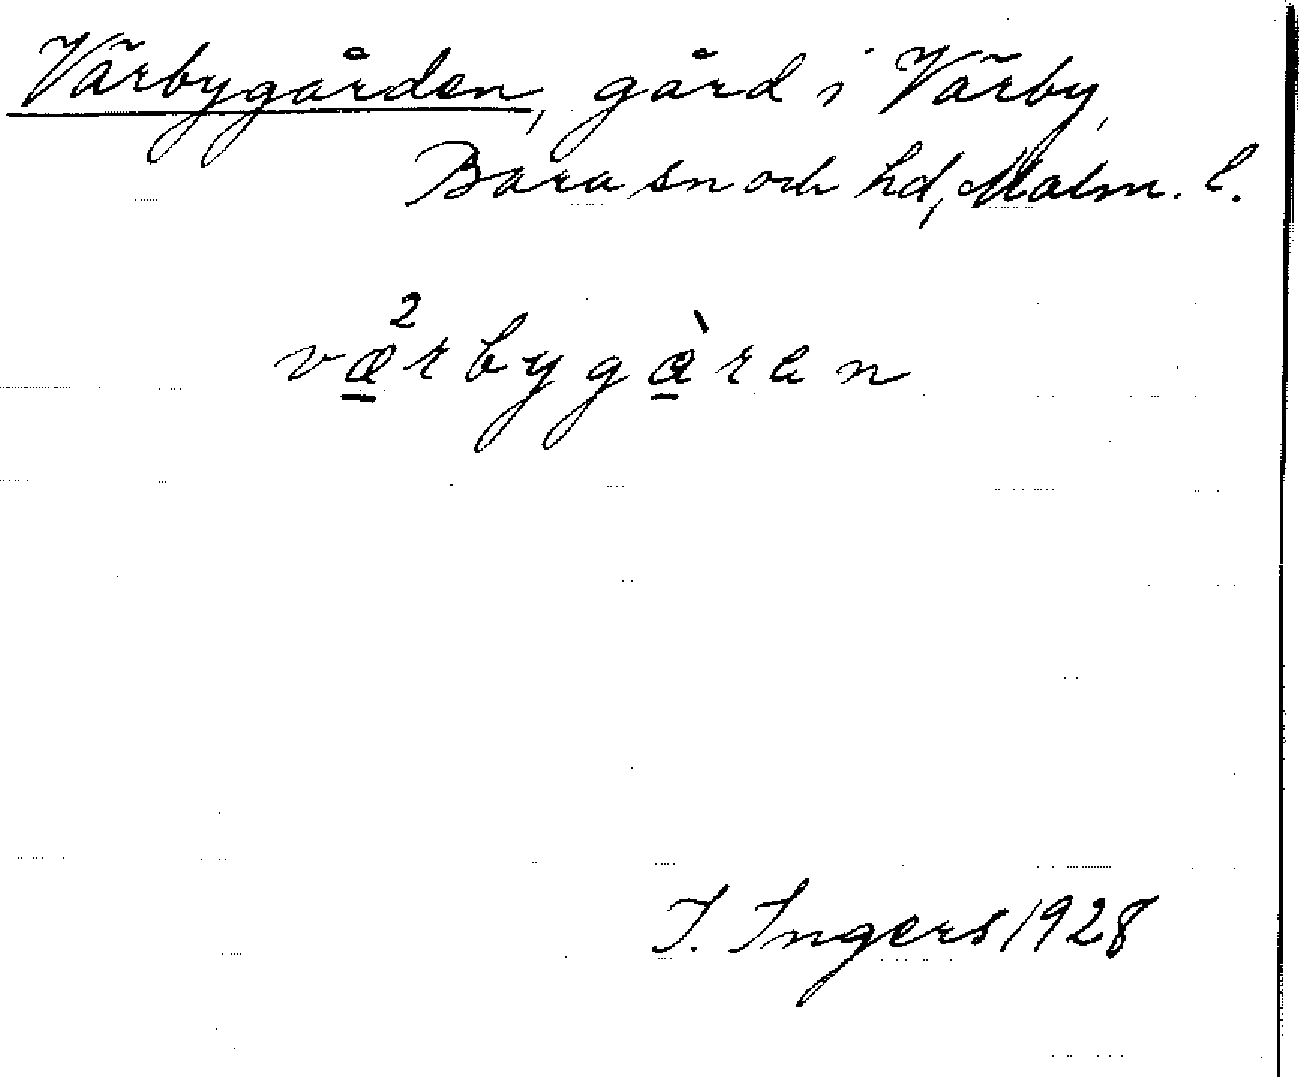 Värbygården, gård i Värby,
Bara sn och hd, Malm. l.
væ̱²rbygæ̱̀ren
I. Ingers 1928